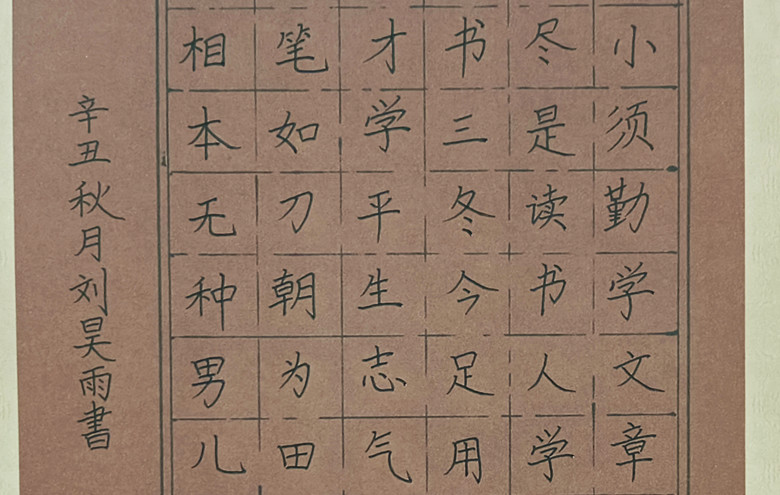 小须勤学文章
尽是读书人学
书三冬今足用
才学平生志气
笔如刀朝为田
相本无种男儿
辛丑秋月刘昊雨書